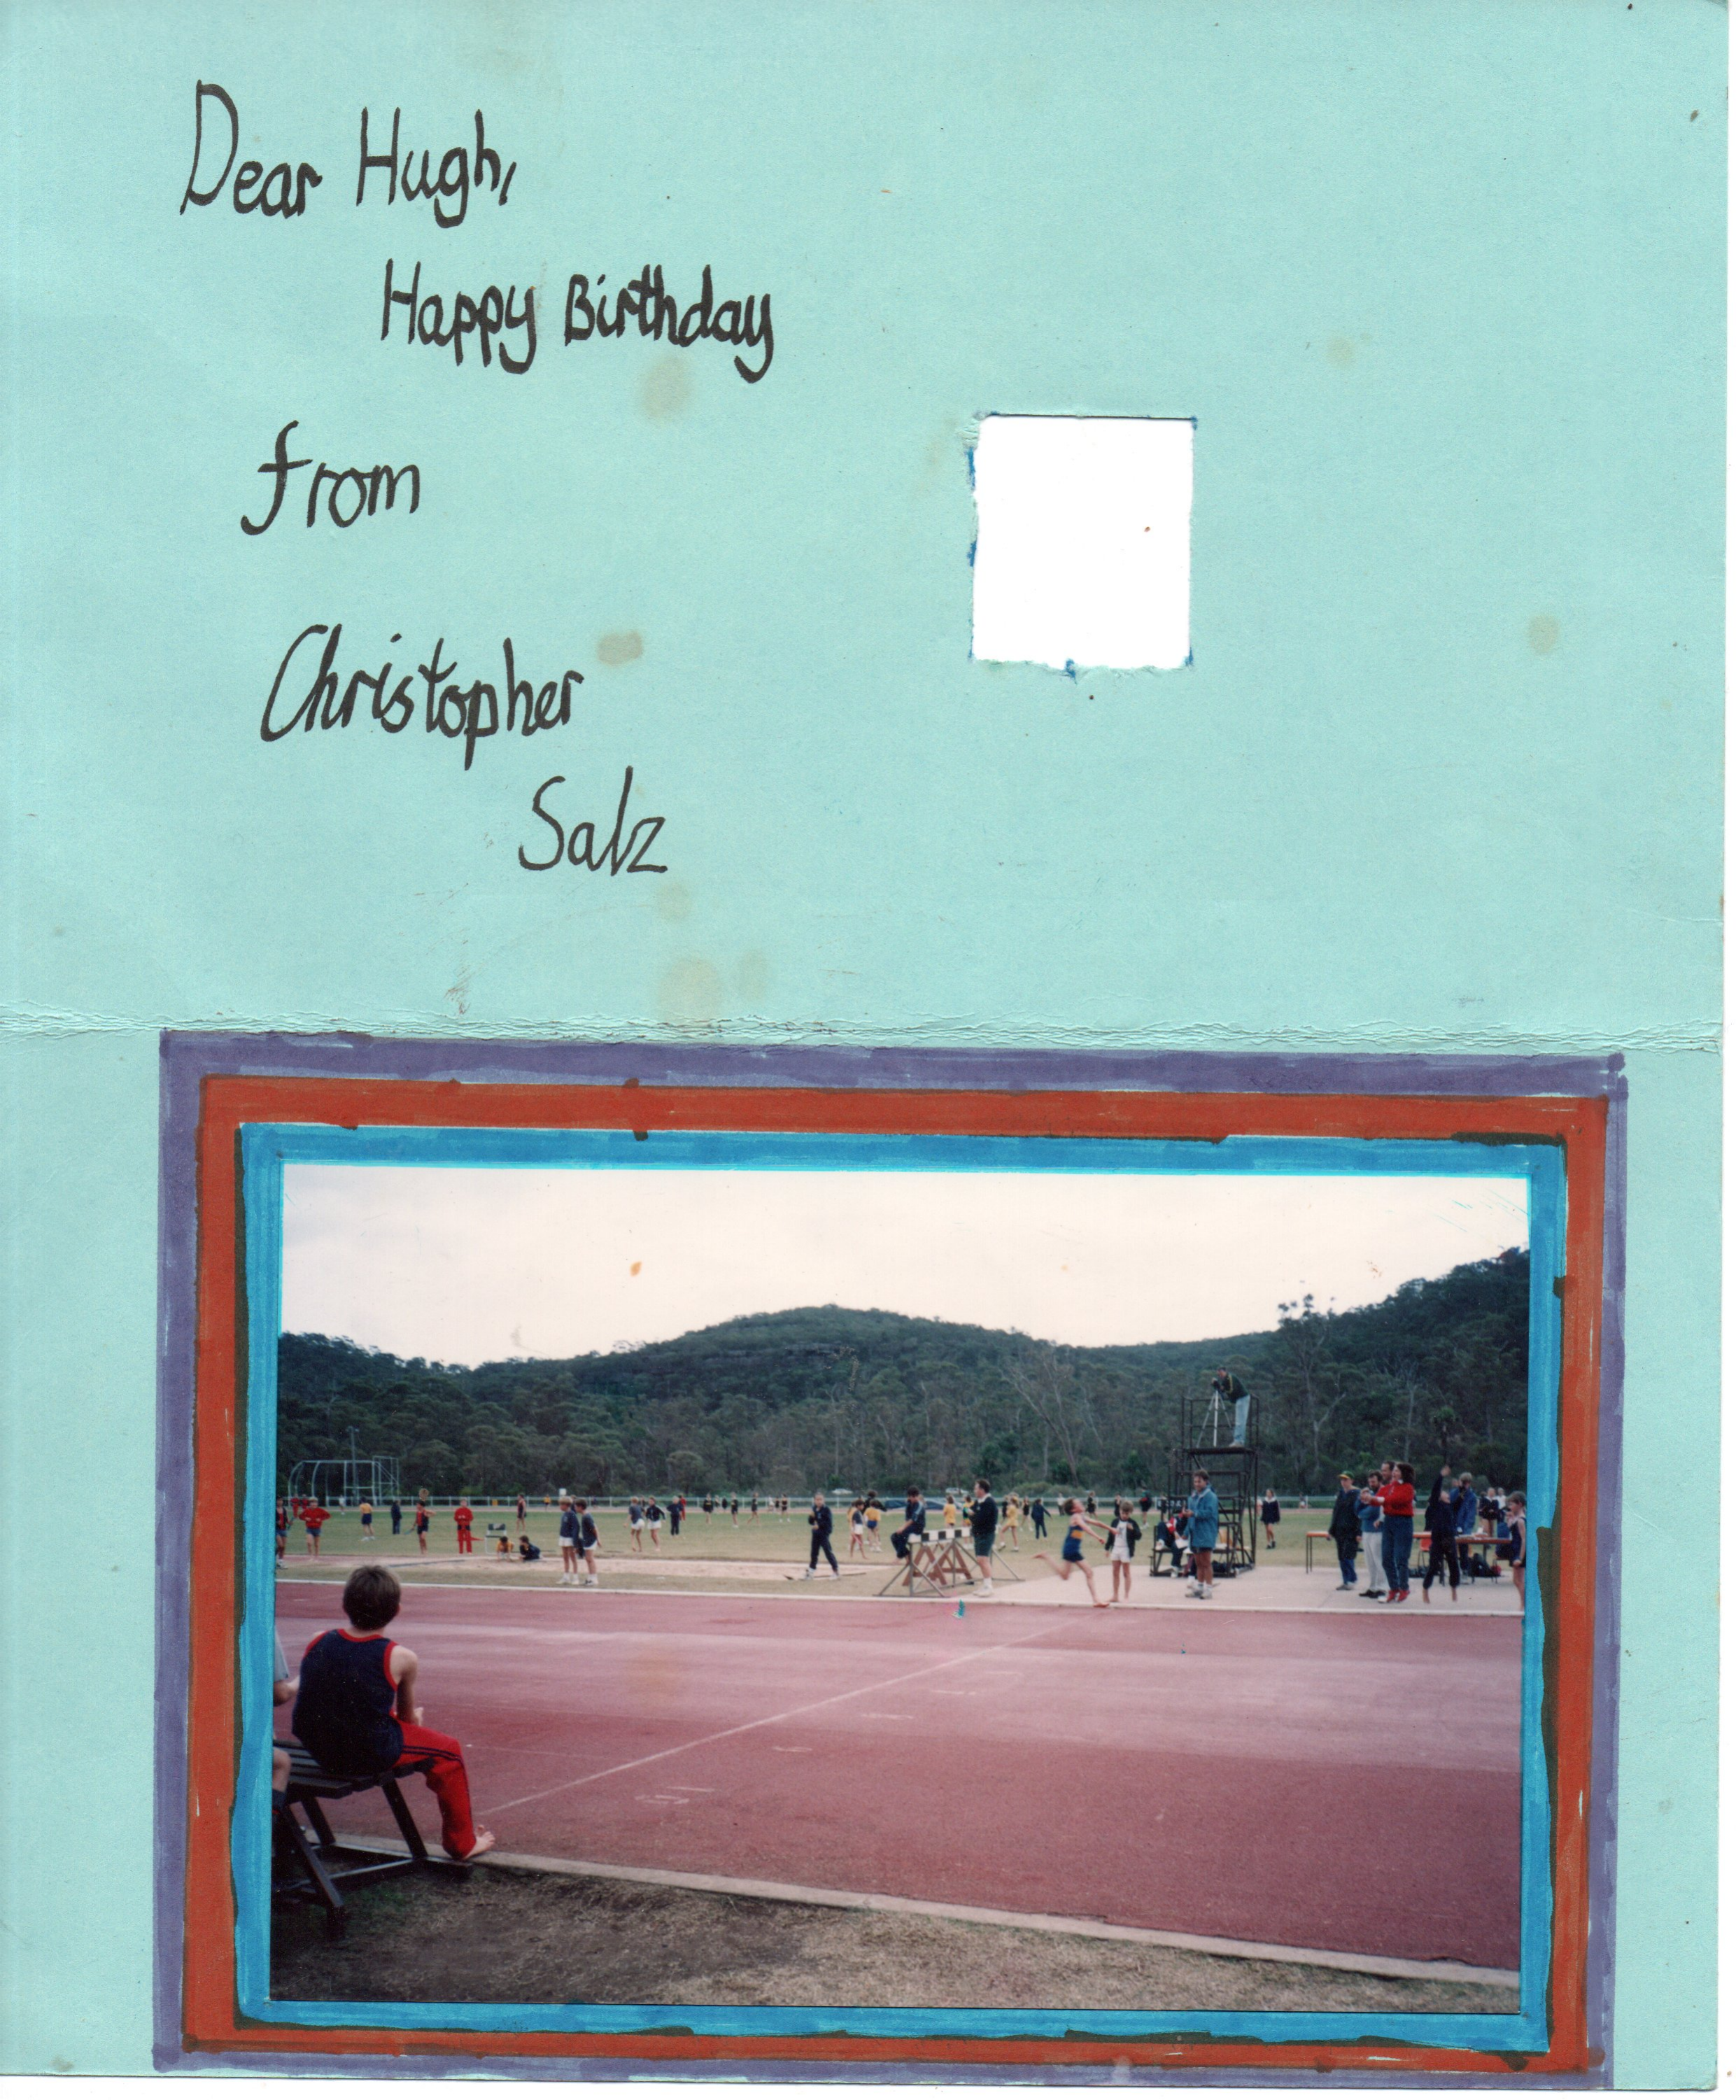 Dear Hugh,
Happy Birthday
from
Christopher
Salz